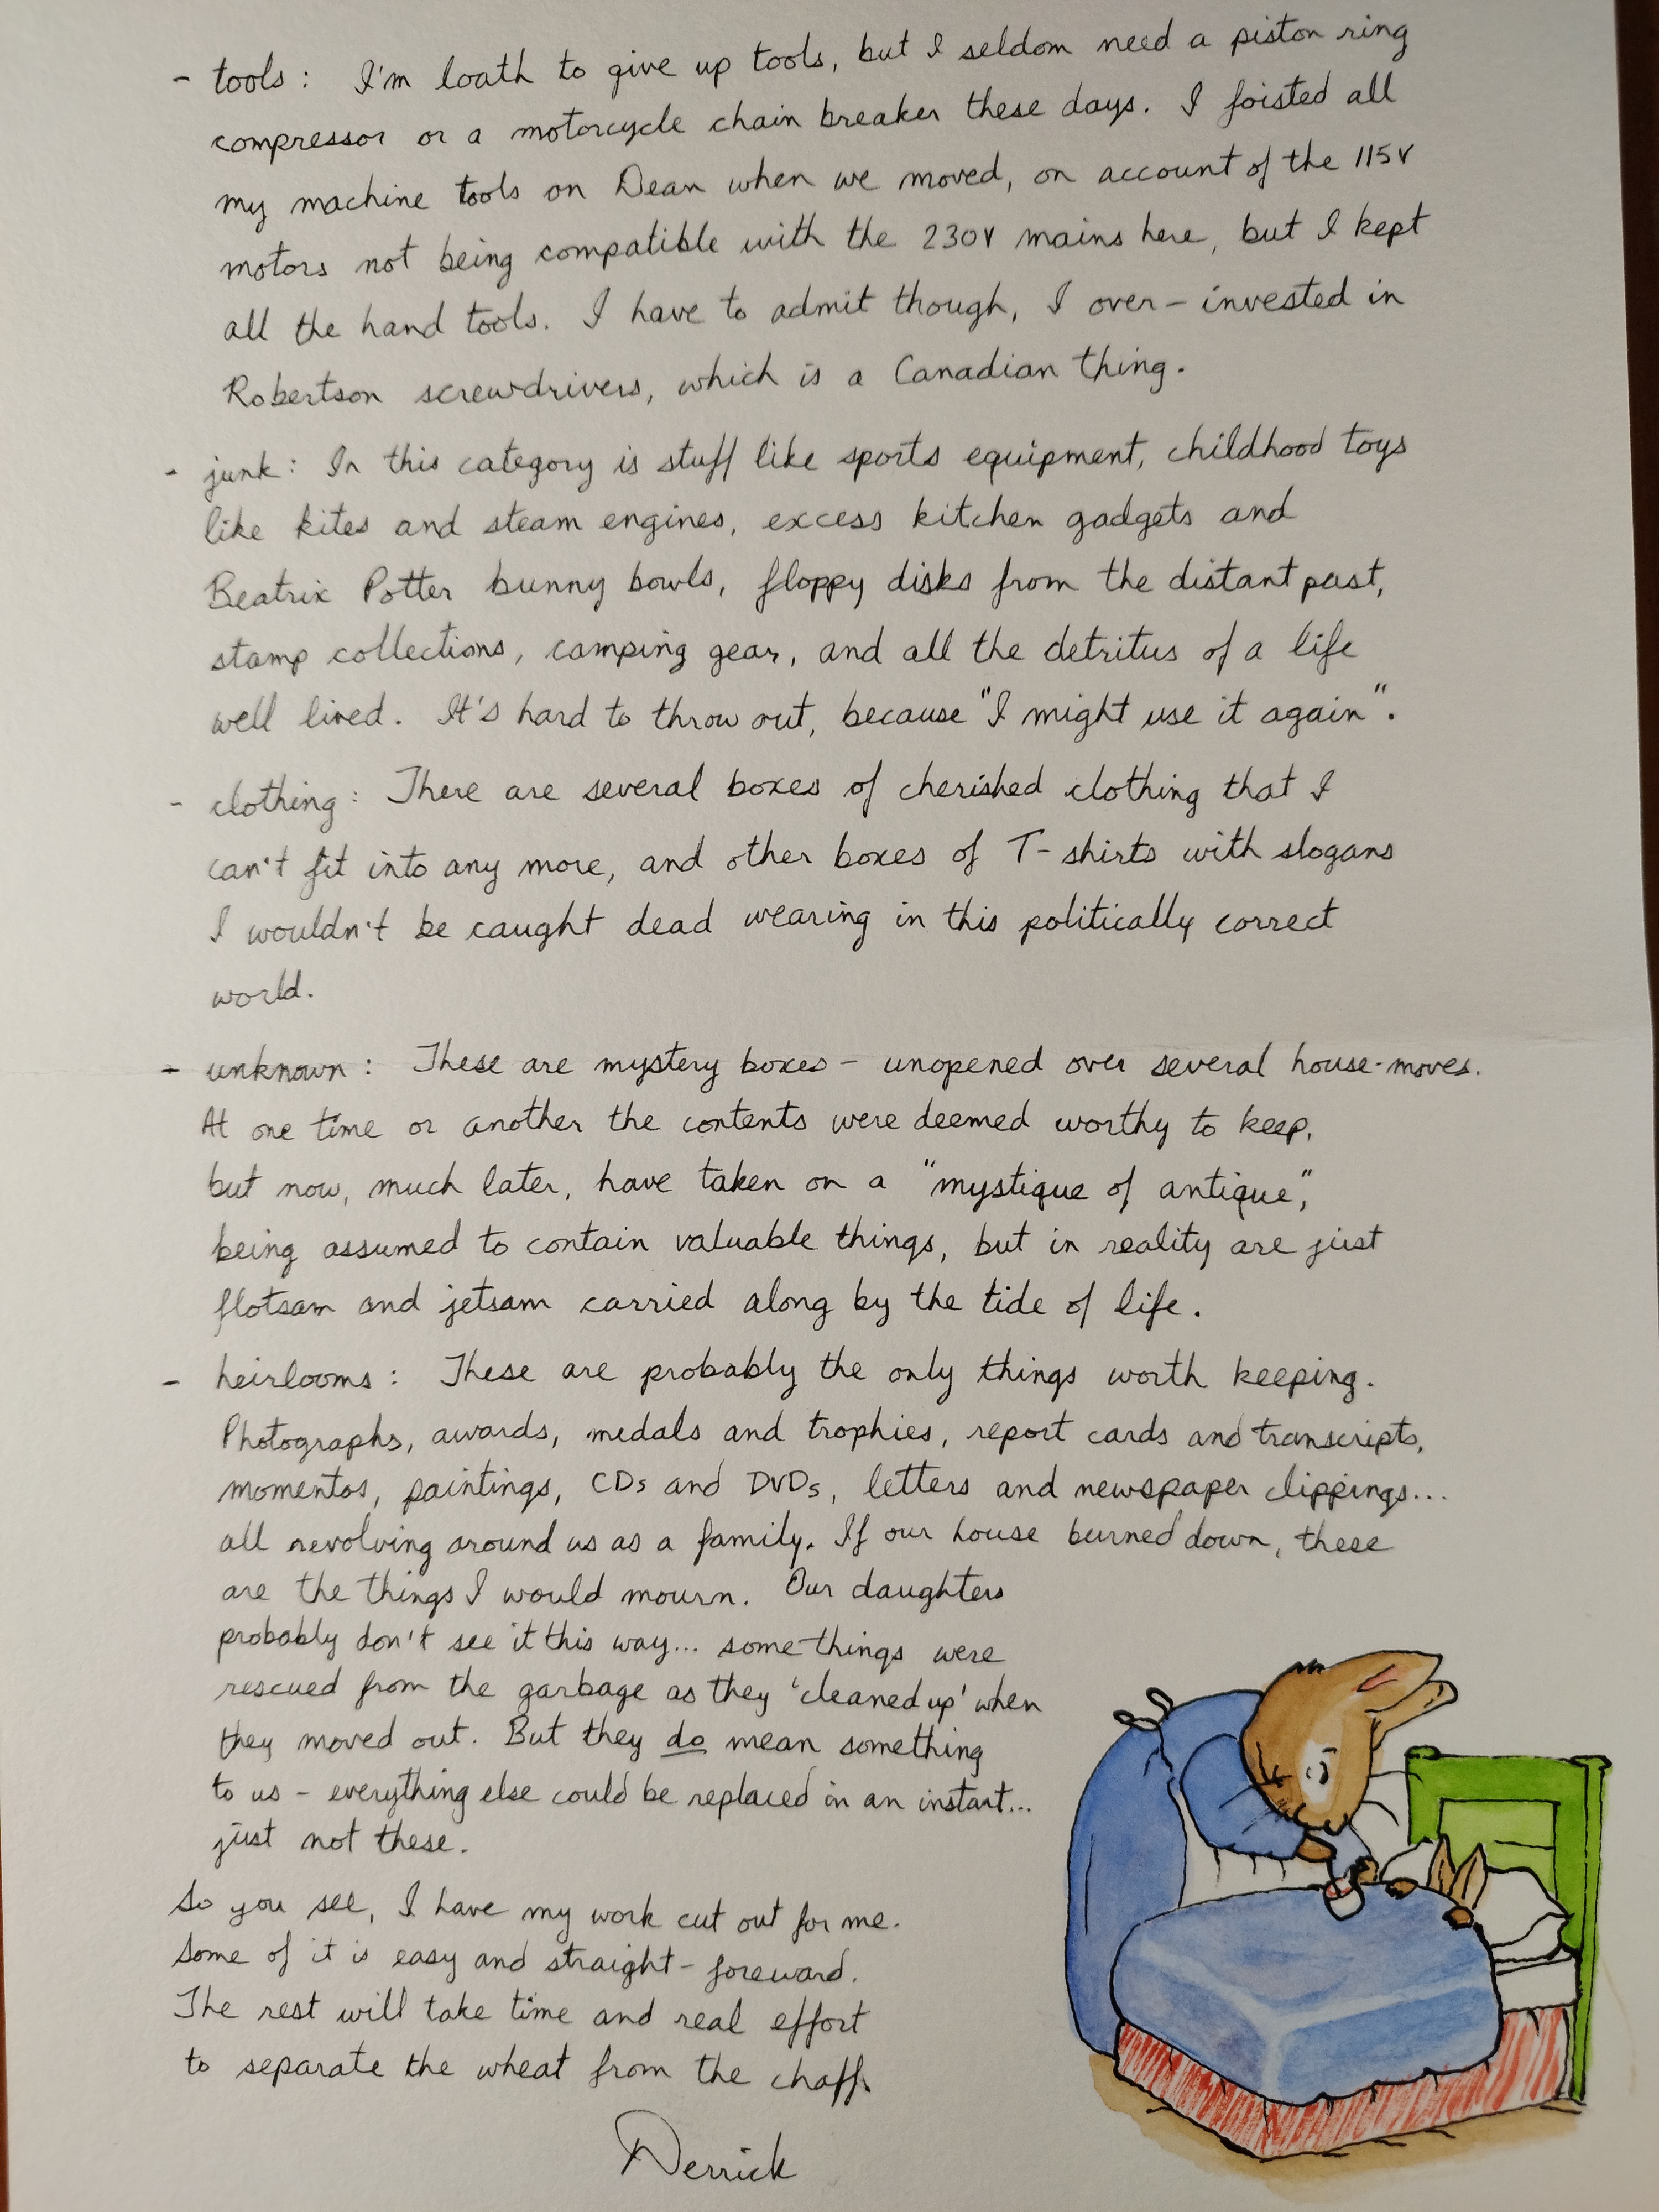 - tools: I'm loath to give up tools, but I seldom need a piston ring
compressor or a motorcycle chain breaker these days. I foisted all
my machine tools on Dean when we moved, on account of the 115V
motors not being compatible with the 230V mains here, but I kept
all the hand tools. I have to admit though, I over-invested in
Robertson screwdrivers, which is a Canadian thing.
- junk: In this category is stuff like sports equipment, childhood toys
like kites and steam engines, excess kitchen gadgets and
Beatrix Potter bunny bowls, floppy disks from the distant past,
stamp collections, camping gear, and all the detritus of a life
well lived. It's hard to throw out, because "I might use it again".
- clothing: There are several boxes of cherished clothing that I
can't fit into any more, and other boxes of T-shirts with slogans
I wouldn't be caught dead wearing in this politically correct
world.
- unknown: These are mystery boxes - unopened over several house-moves.
At one time or another the contents were deemed worthy to keep,
but now, much later, have taken on a "mystique of antique",
being assumed to contain valuable things, but in reality are just
flotsam and jetsam carried along by the tide of life.
- heirlooms: These are probably the only things worth keeping.
Photographs, awards, medals and trophies, report cards and transcripts,
momentos, paintings, CDs and DVDs, letters and newspaper clippings...
all revolving around us as a family. If our house burned down, these
are the things I would mourn. Our daughters
probably don't see it this way... some things were
rescued from the garbage as they 'cleaned up' when
they moved out. But they do mean something
to us - everything else could be replaced in an instant...
just not these.
So you see, I have my work cut out for me.
Some of it is easy and straight-foreward.
The rest will take time and real effort
to separate the wheat from the chaff.
Derrick